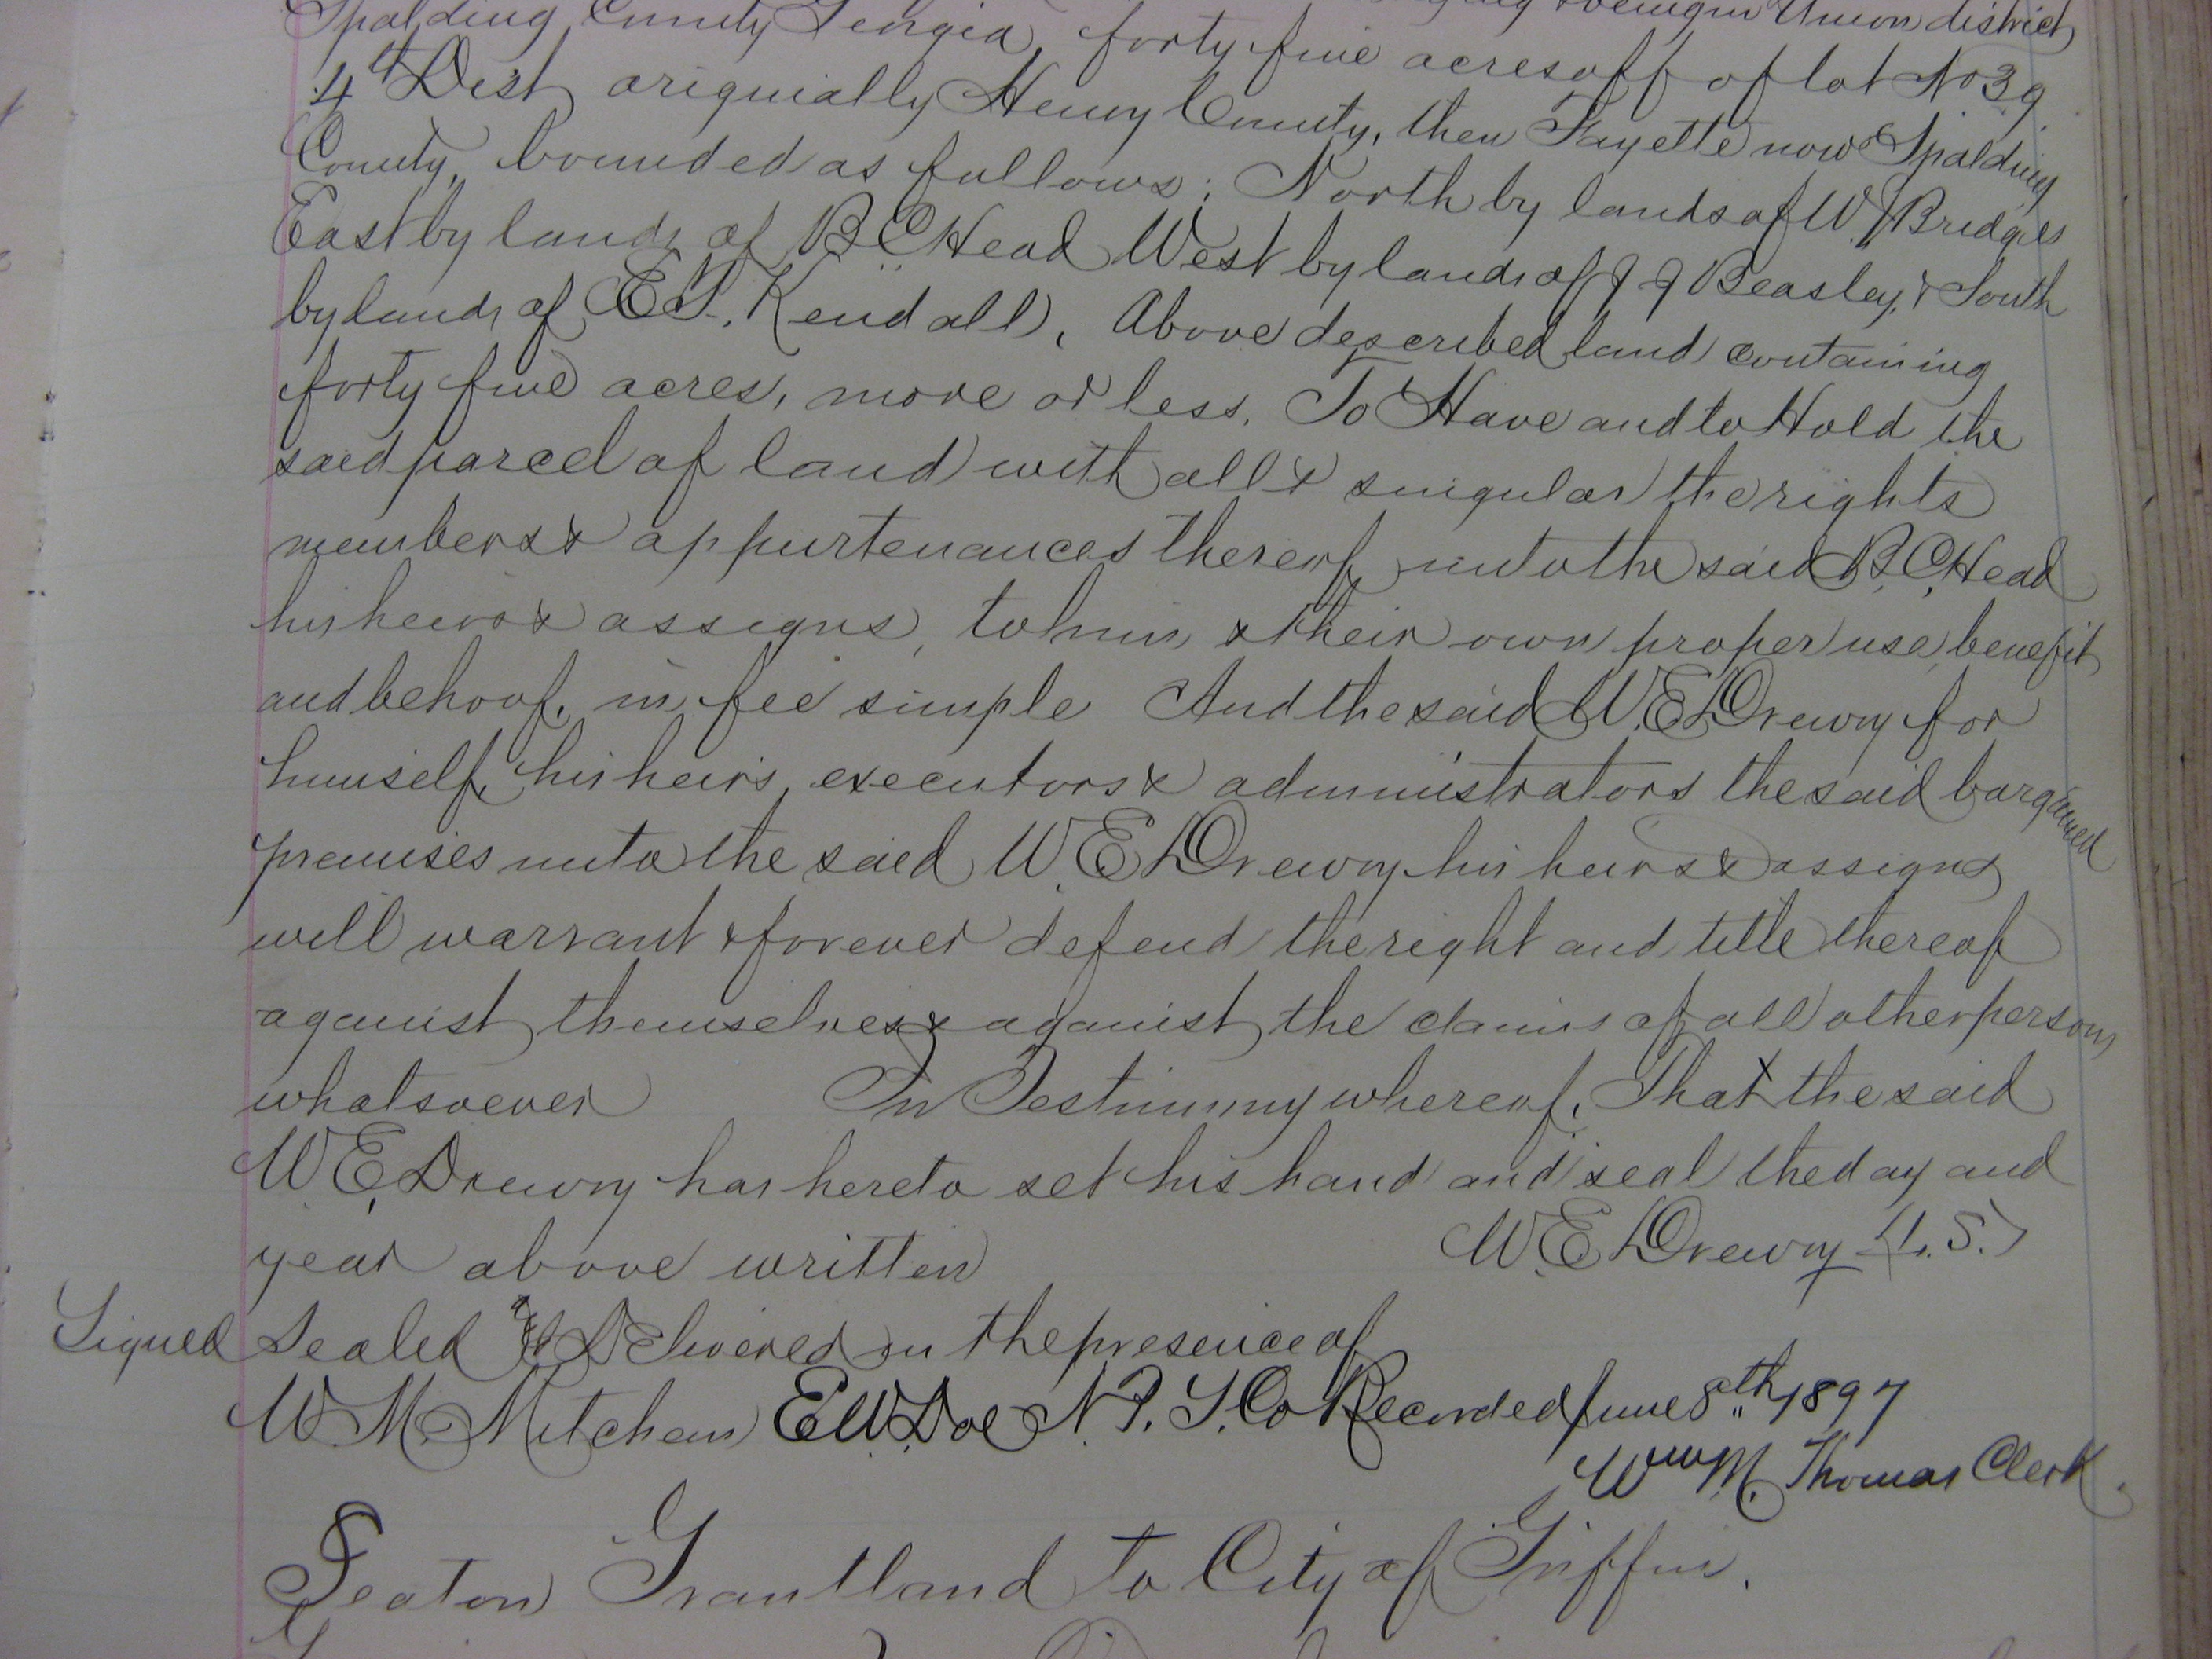 Union district
Spalding County Georgia, forty five acres off of lot No 39
4th Dist originially Henry County, then Fayette now Spalding
County, bounded as follows; North by lands of W. J Bridges
East by lands of B C Head West by lands of J J Beasley, & South
by lands of E T. Kendall, Above described land containing
forty five acres, more or less. To Have and to Hold the
said parcel of land with all & singular the rights
members & appurtenances thereof unto the said B. C. Head
his heirs & assigns, to him & their own proper use, benefit
and behoof, in fee simple And the said W. E Drewry for
himself, his heirs, executors & administrators the said bargained
premises unto the said W. E Drewry his heirs & assigns
will warrant & forever defend the right and title thereof
against themselves & against the claims of all other persons
whatsoever In Testimony whereof, That the said
W. E. Drewry has hereto set his hand and seal the day and
year above written W. E Drewry (L. S.)
Signed Sealed & Delivered in the presence of
W. M. Mitcham E. W. Doe N. P. S. Co Recorded June 8th, 1897
Wm M. Thomas Clerk.
Seaton Grantland to City of Griffin.